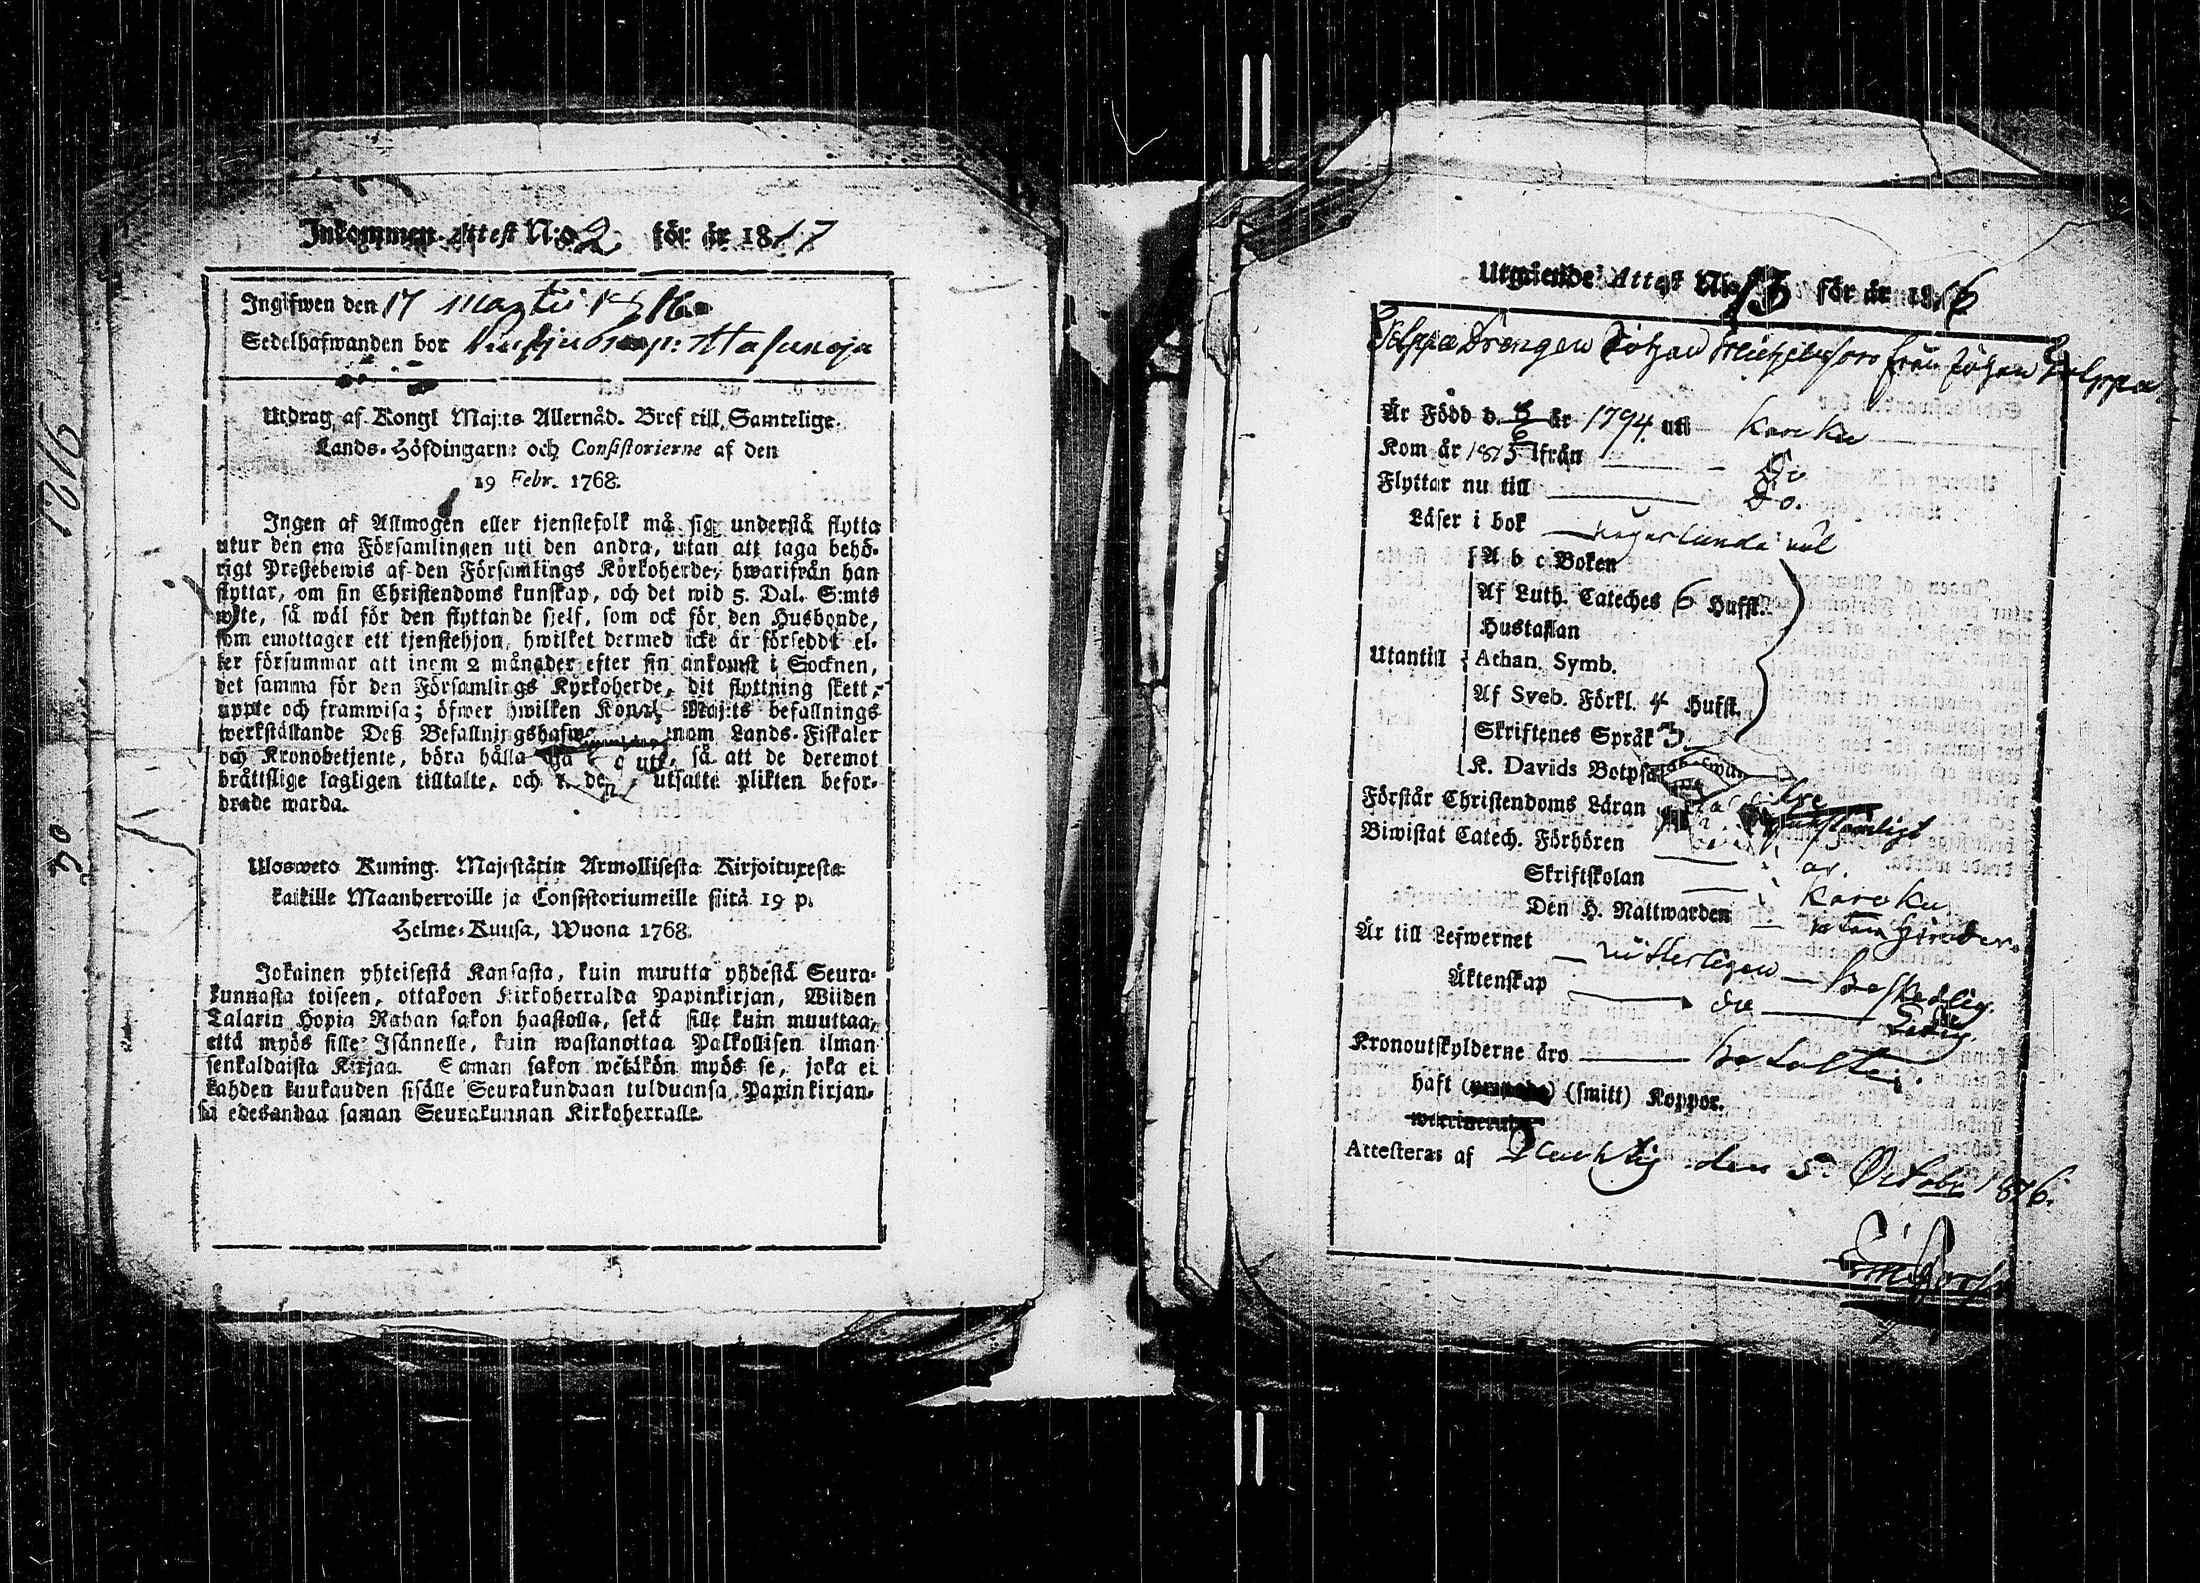 Inkommen Attest N:o 2 för år 1817
Ingifwen den 17 Martii 1816
Sedelhafwanden bor
Utdrag af Kongl Maj:ts Allernåd. Bref till Samtelige
Lands-Höfdingarne och Consistorierne af den
19 Febr. 1768.
Ingen af Allmogen eller tjenstefolk må sig understå flytta
utur den ena Församlingen uti den andra, utan att taga behö-
rigt Prestebewis af den Församlings Körkoherde, hwarifrån han
flyttar, om sin Christendoms kunskap, och det wid 5. Dal. S:mts
wite, så wäl för den flyttande sjelf, som ock för den Husbonde,
som emottager ett tjenstehjon, hwilket dermed icke är försedd: el-
ler försummar att inom 2 månader efter sin ankomst i Socknen,
det samma för den Församlings Kyrkoherde, dit flyttning skett,
uppte och framwisa; öfwer hwilken Kongl. Maj:ts befallnings
werkställande Deß Befallningshafwa inom Lands-Fiskaler
och Kronobetjente, böra hålla så att de deremot
bråttslige lagligen tilltalte, och utsatte plikten befor-
drade warda.
Ulosweto Kuning. Majestätin Armollisesta Kirjoituxesta
kaikille Maanherroille ja Consistoriumeille siitä 19 p.
Helme-Kuusa, Wuona 1768.
Jokainen yhteisestä Kansasta, kuin muutta yhdestä Seura-
kunnasta toiseen, ottakoon Kirkoherralda Papinkirjan, Wiiden
Talarin Hopia Rahan sakon haastolla, sekä sille kuin muuttaa,
että myös sille Isännelle, kuin wastanottaa Palkollisen ilman
senkaldaista Kirjaa. Saman sakon wetäkön myös se, joka ei
kahden kuukauden sisälle Seurakundaan tulduansa Papinkirjan-
sa edesandaa saman Seurakunnan Kirkoherralle.
1816
70
Utgående Attest N:o 13 för år 1816
Drengen Johan Michelsson från Johan
Är Född d. 8/6 år 1794 uti Karcku
Kom år 1815 ifrån Do
Flyttar nu till Do.
Läser i bok wäl
Utantill
A b c Boken
Af Luth. Cateches 6 Hufst.
Hustaflan
Athan. Symb.
Af Sveb. Förkl. 4 Hufst.
Skriftenes Språk 3.
K. Davids Botpsa
Förstår Christendoms Läran
Biwistat Catech. Förhören
Skriftskolan Karcku
Den H. Nattwarden
Är till Lefwernet beskedlig.
Äktenskap Ledig.
Kronoutskylderne äro betalte.
haft (smitt) Koppor.
Attesteras af den 5 Octobr 1816.